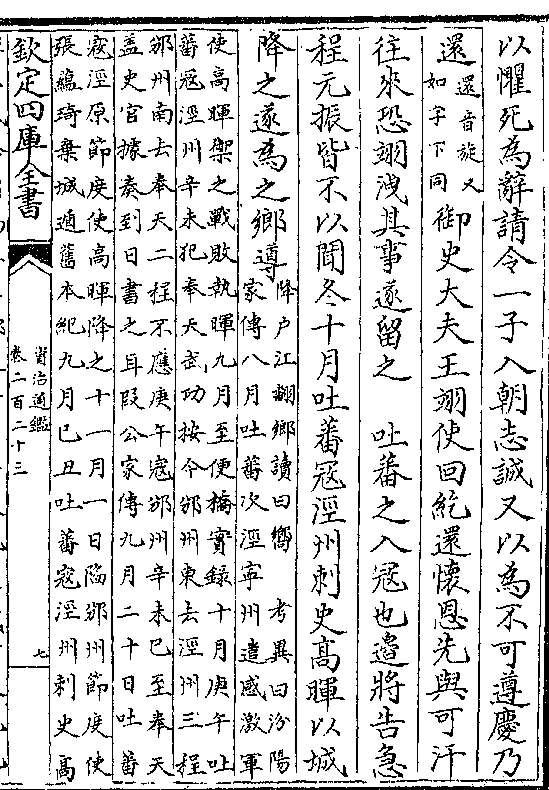 以懼死為辭請令一子入朝志誠又以為不可遵慶乃
還
還音旋又
如字下同
御史大夫王翊使回紇還懷恩先與可汗
往來恐翊洩其事遂留之　吐蕃之入冦也邉將告急
程元振皆不以聞冬十月吐蕃冦涇州刺史高暉以城
降之遂為之鄉導
降户江翻鄉讀曰嚮　考異曰汾陽
家傳八月吐蕃次涇寧州遣感激軍
使高暉禦之戰敗執暉九月至便橋實録十月庚午吐
蕃寇涇州辛未犯奉天武功按今邠州東去涇州三程
邠州南去奉天二程不應庚午寇邠州辛未已至奉天
盖史官據奏到日書之耳段公家傳九月二十日吐蕃
寇涇原節度使高暉降之十一月一日陷邠州節度使
張藴琦棄城遁舊本紀九月已丑吐蕃寇涇州刺史高
欽定四庫全書
資治通鑑
卷二百二十三
七